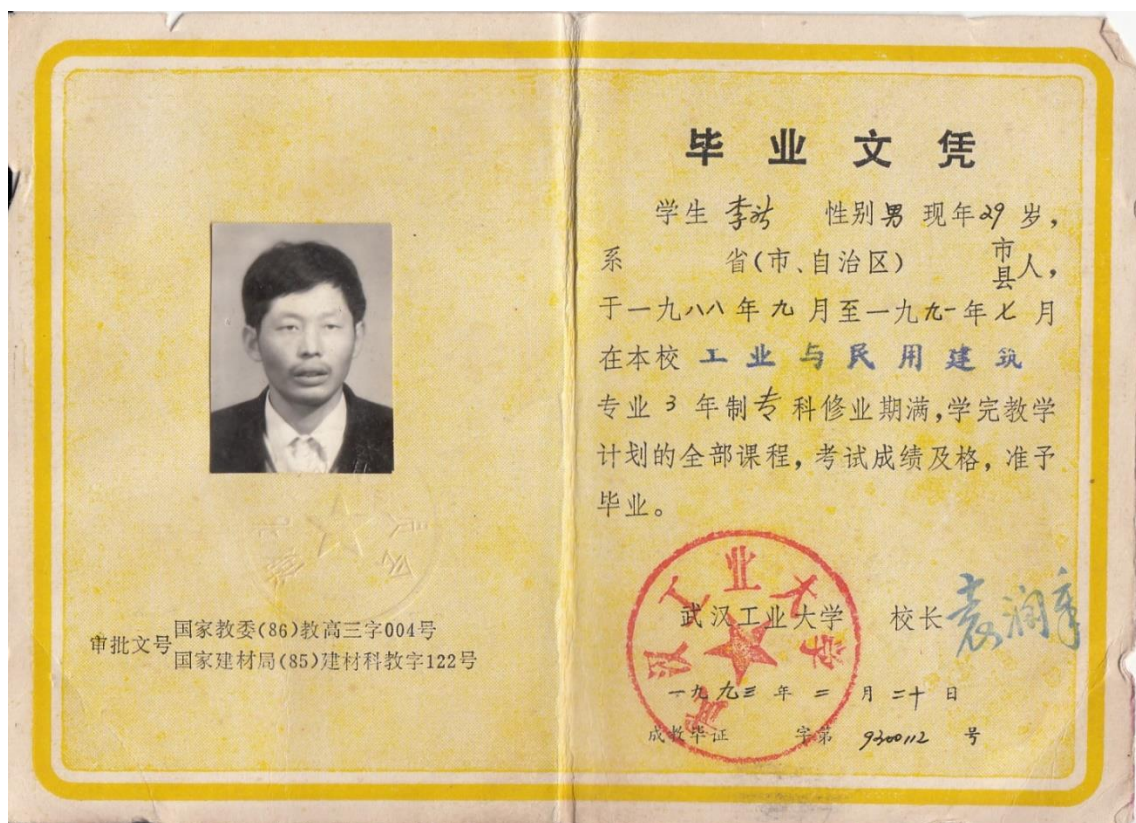 审批文号
国家教委(86)教高三字004号
国家建材局(85)建材科教字122号
毕业文凭
学生 李 性别男 现年29岁，
系 省(市、自治区) 市县人，
于一九八八年九月至一九九一年七月
在本校 工业与民用建筑
专业3年制专科修业期满，学完教学
计划的全部课程，考试成绩及格，准予
毕业。
武汉工业大学
武汉工业大学 校长 袁润章
一九九三年二月二十日
成教毕证 字第 9300112 号